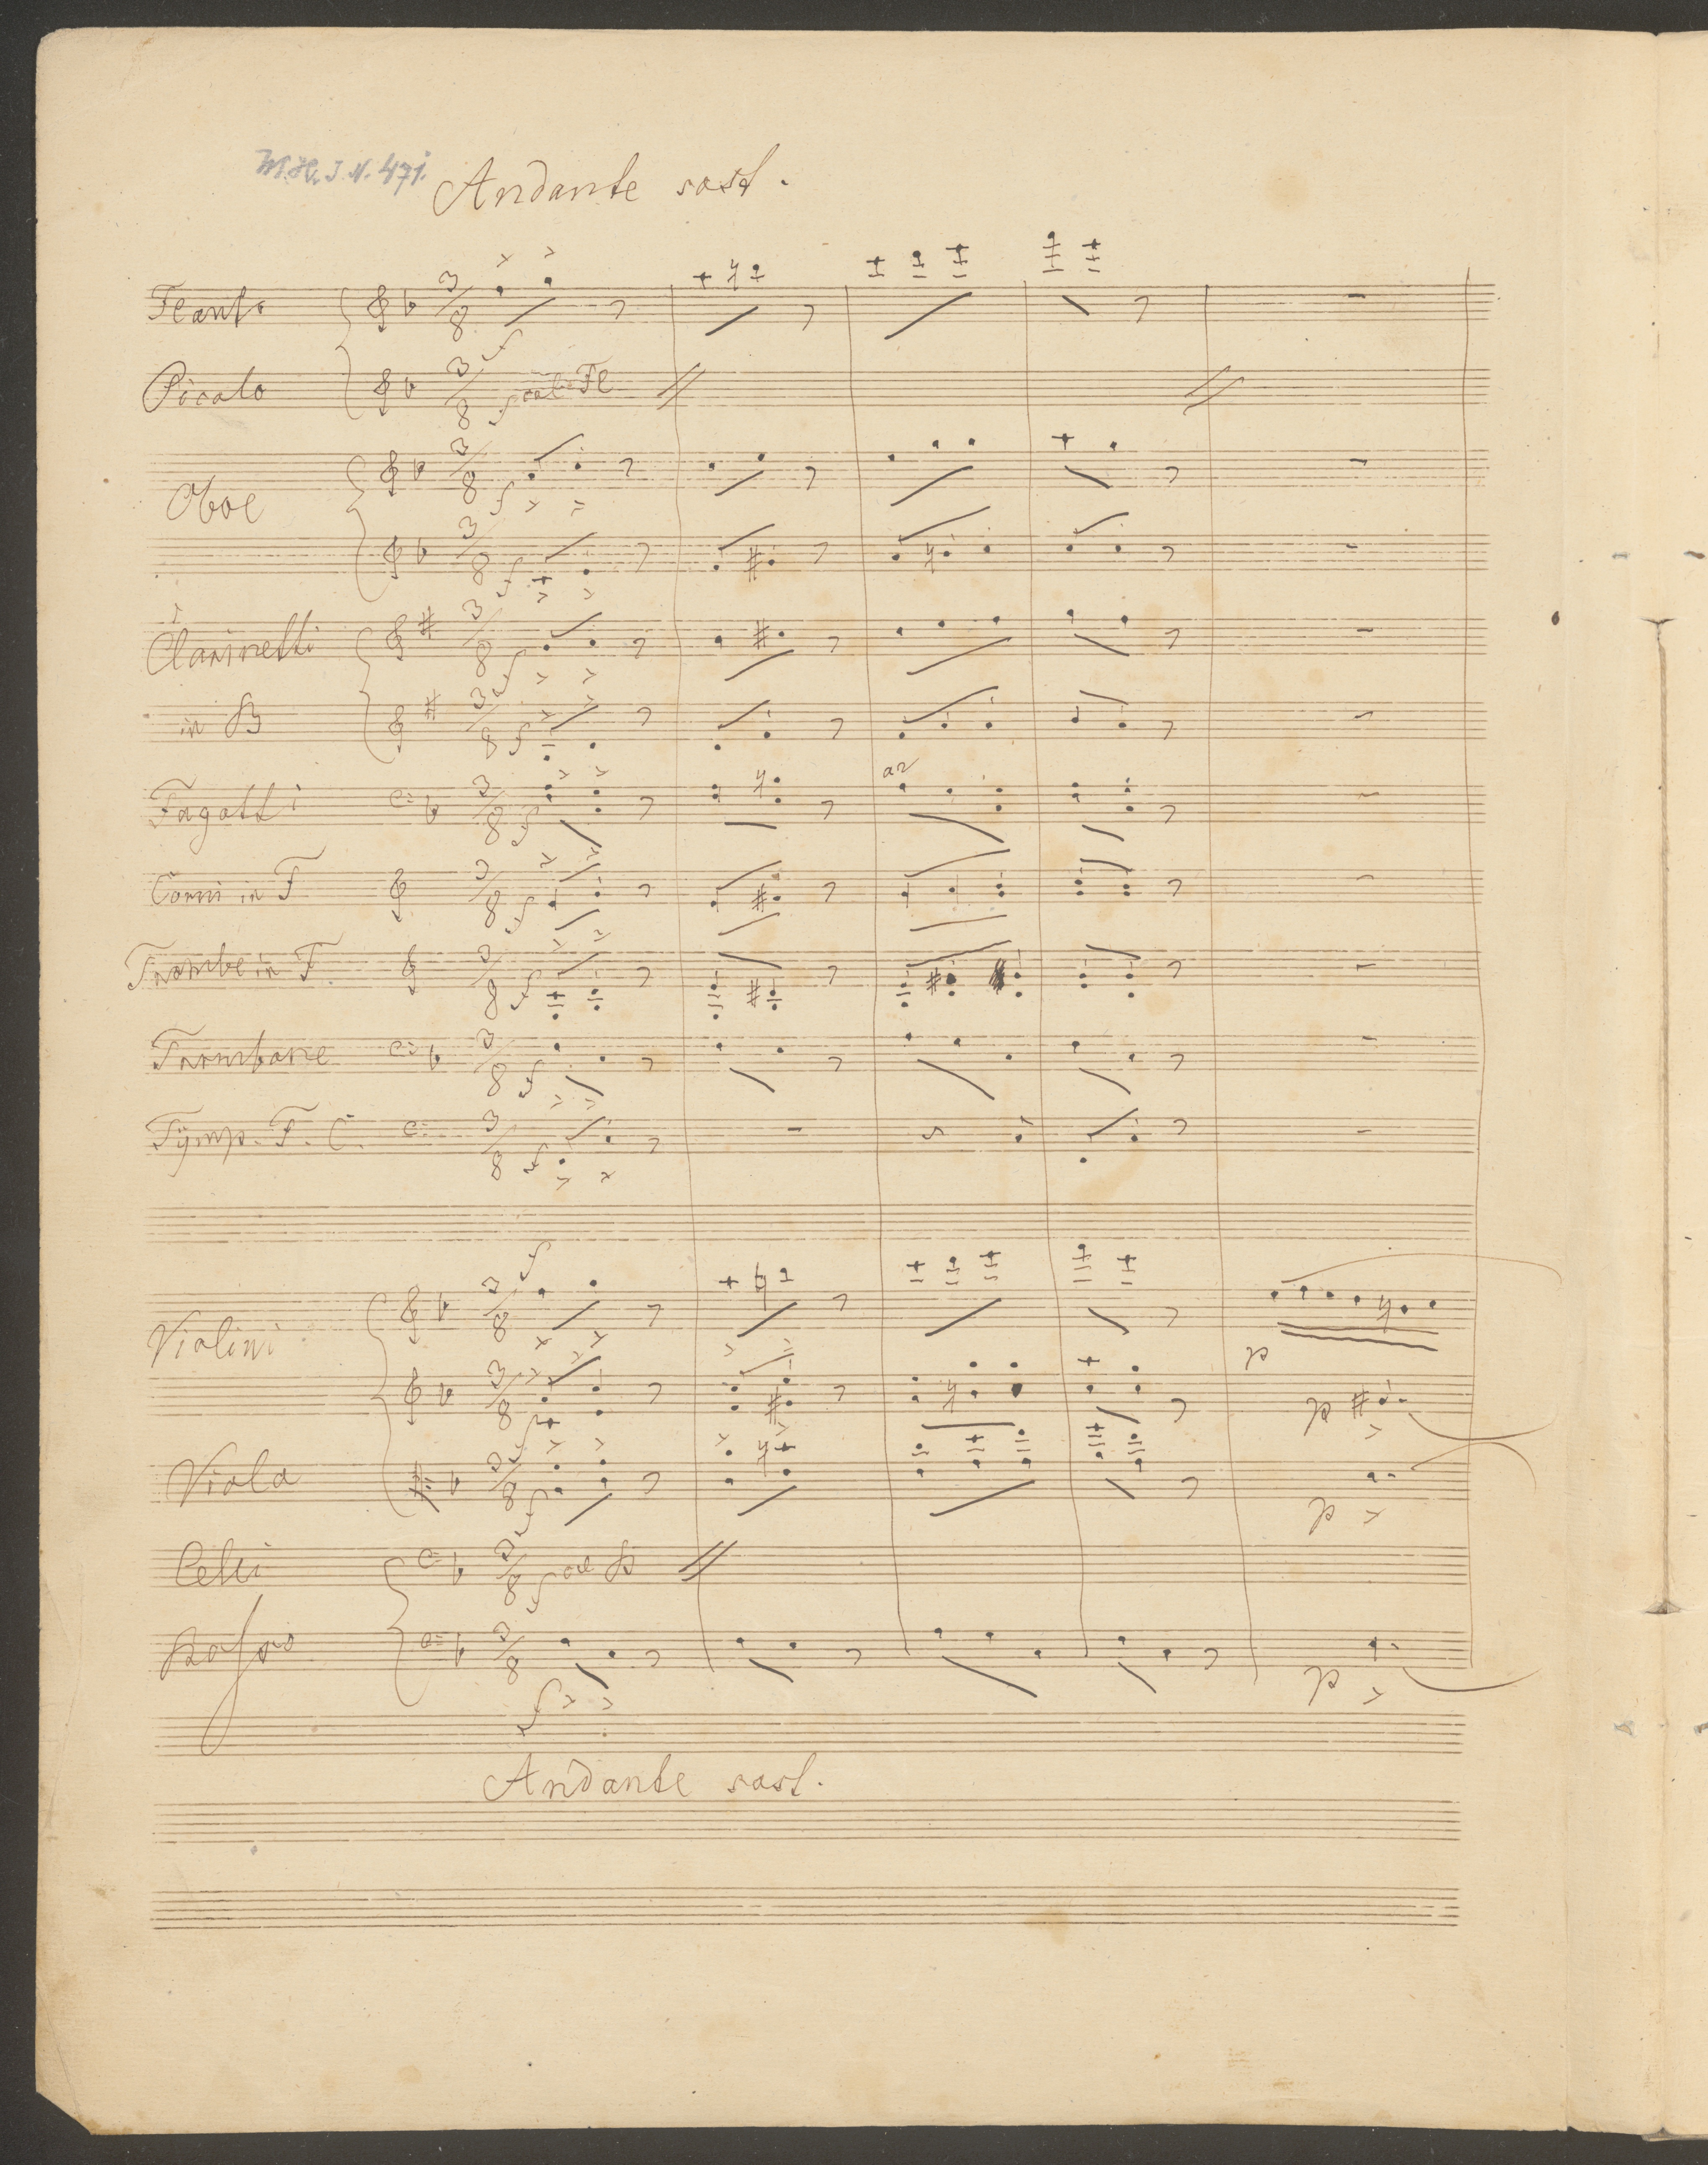 M.H. I. N. 471.
Andante sost.
Flauto
f
Picolo
f col Fl
Oboe
f
f
Clarinetti
f
in B
f
Fagotti
f
a2
Corni in F
f
Trombe in F
f
Trombone
f
Tÿmp. F. C.
f
f
Violini
p
f
p
Viola
f
p
Celli
f col B
Basso
f
p
Andante sost.